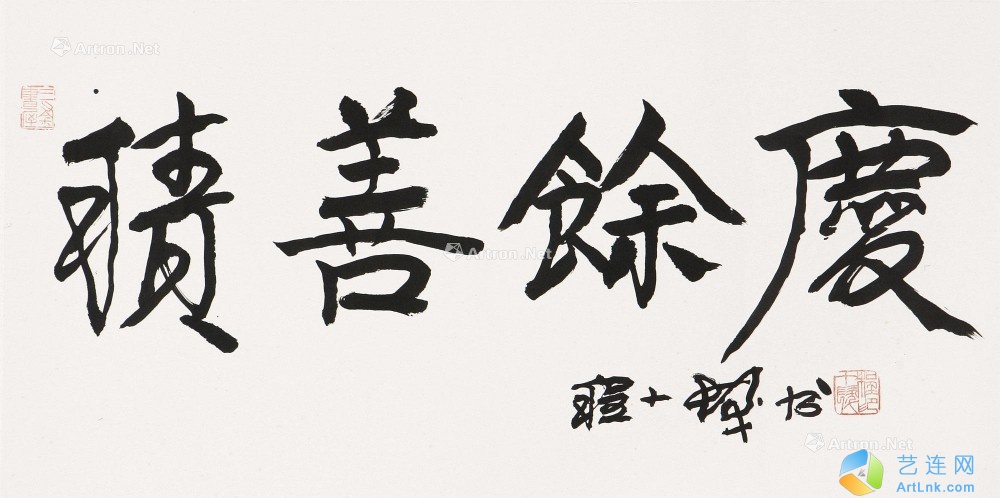 Artron.Net
Artron.Net
積善餘慶
Artron.Net
程十髮书
Artron.Net
艺连网
ArtLnk.com